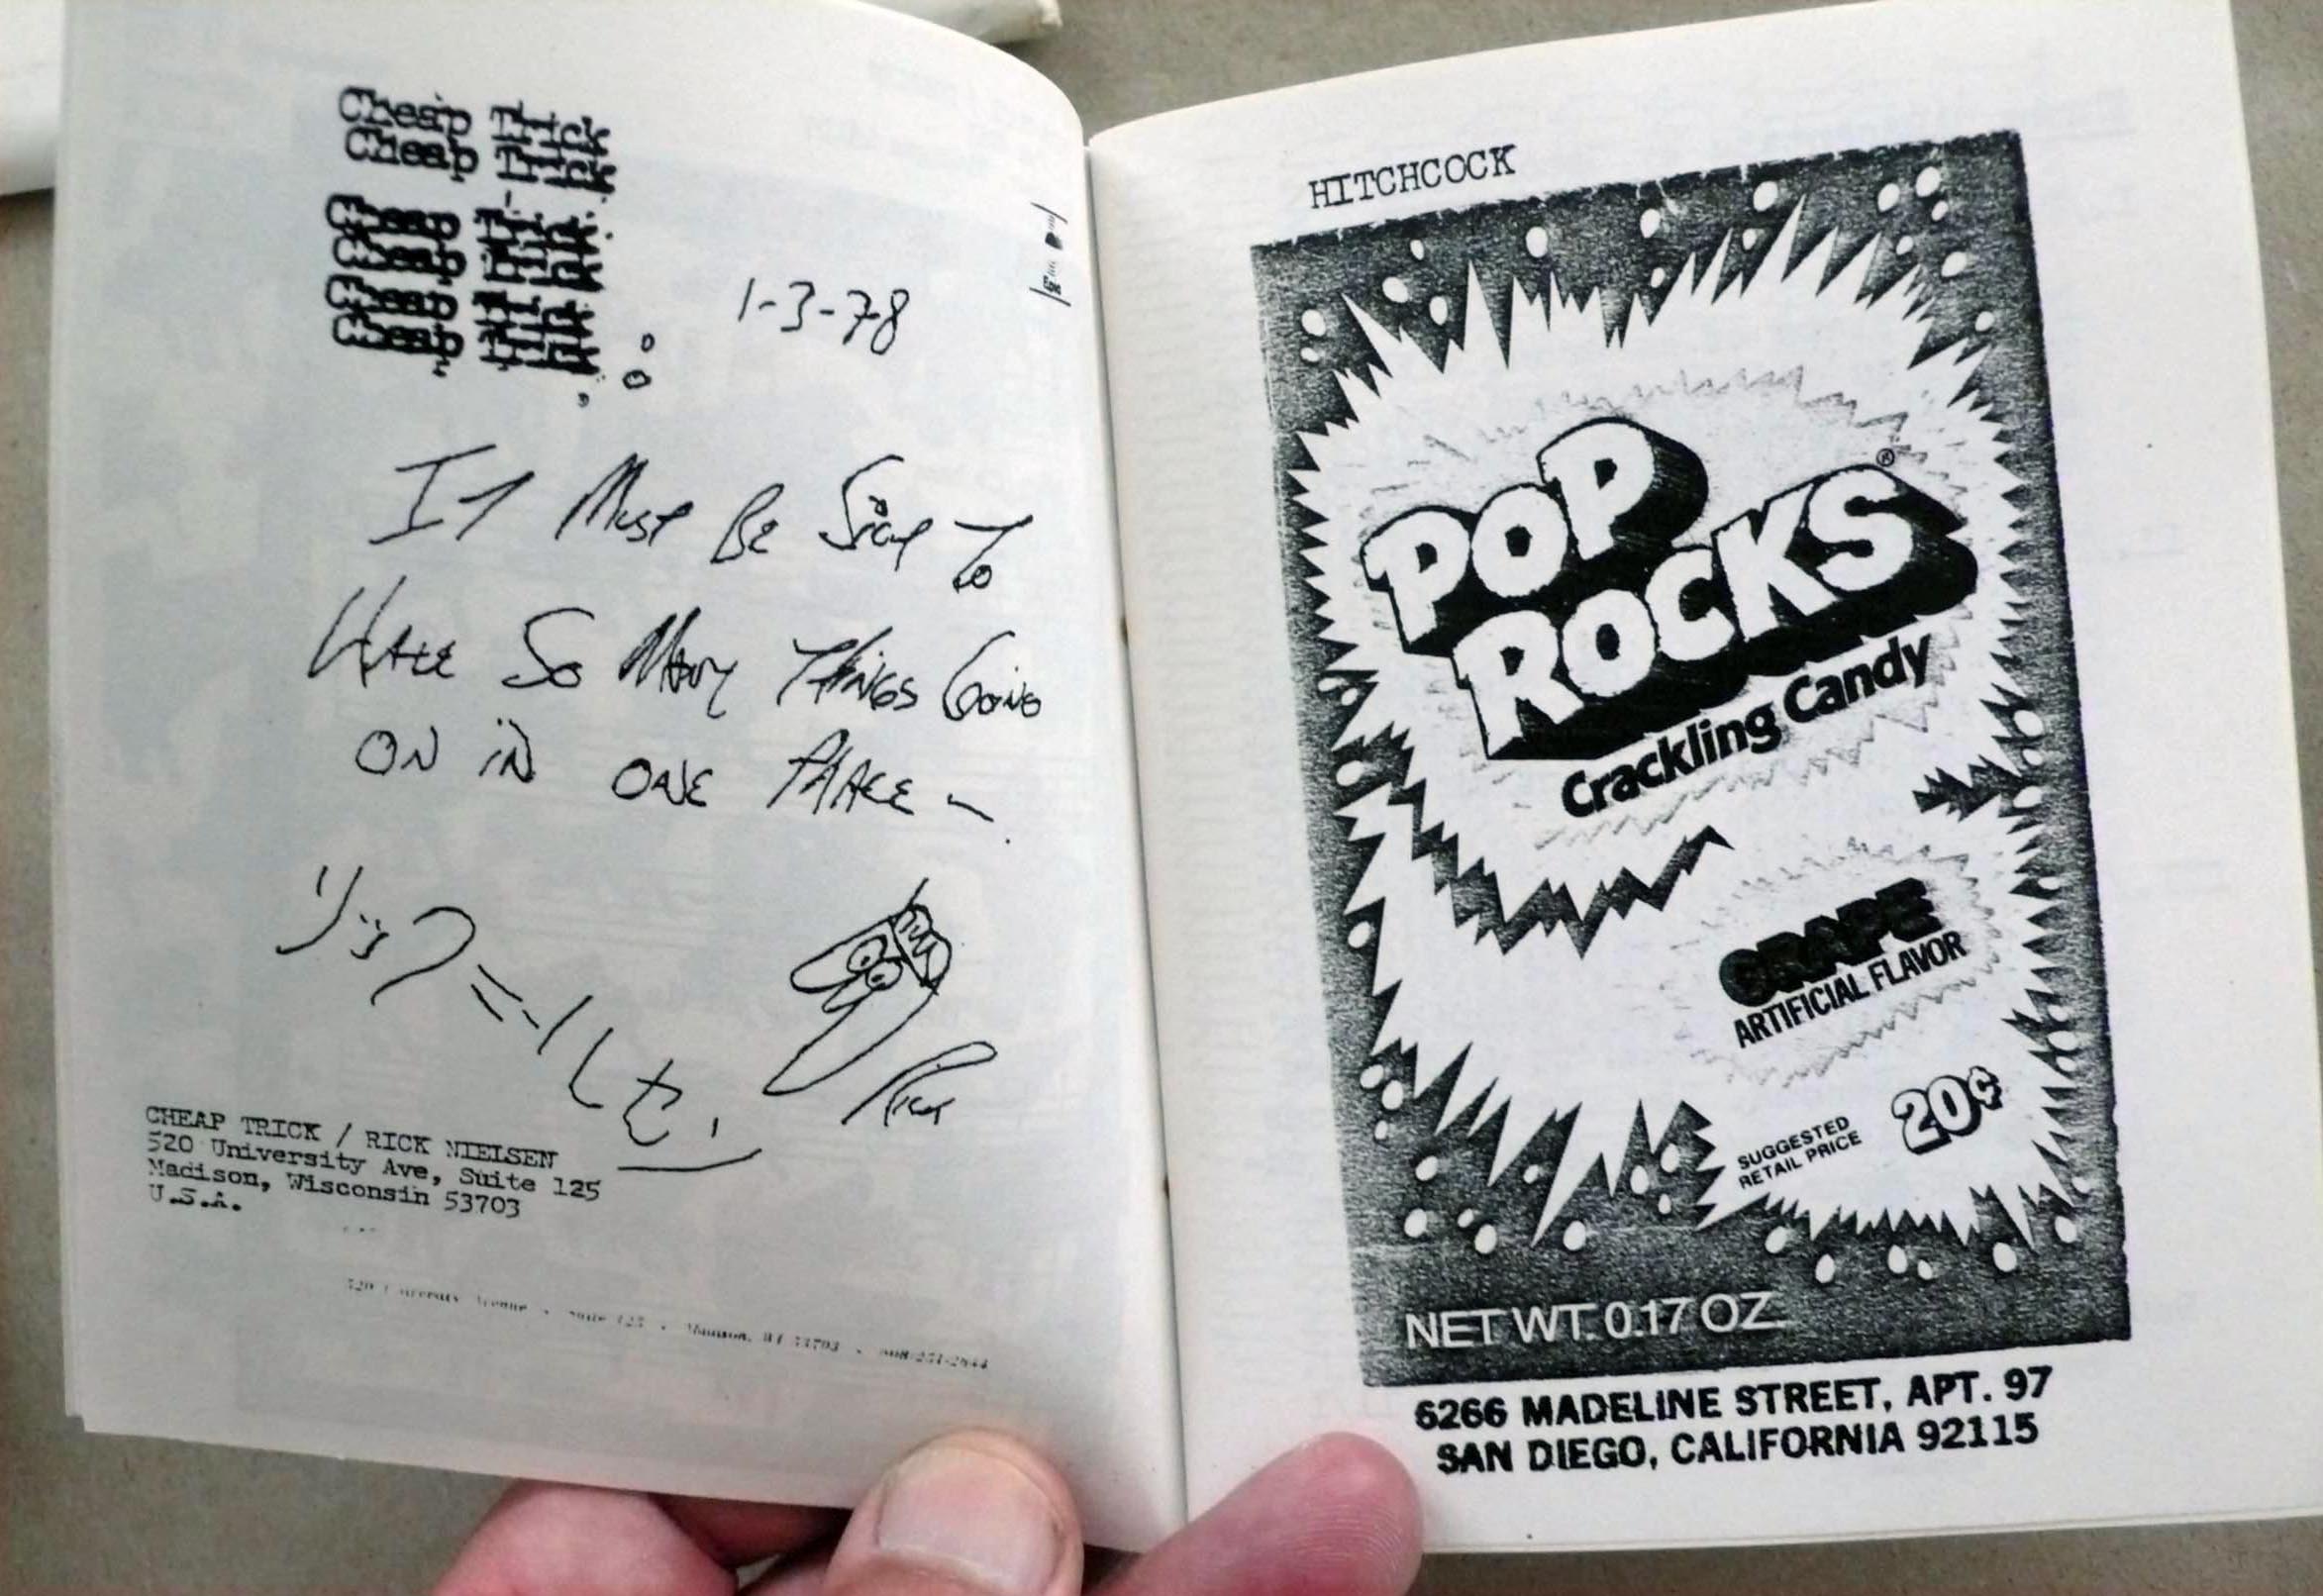 Cheap Trick
Cheap Trick
Cheap Trick
Cheap Trick
Cheap Trick
Cheap Trick
1-3-78
IT Must BE Sick To
HAVE So MANY THiNGS GoiNG
ON iN ONE PLACE -
Rick
CHEAP TRICK / RICK NIELSEN
520 University Ave, Suite 125
Madison, Wisconsin 53703
U.S.A.
520 University Avenue • Suite 125 • Madison, WI 53703 •
HITCHCOCK
POP
ROCKS®
Crackling Candy
GRAPE
ARTIFICIAL FLAVOR
SUGGESTED
RETAIL PRICE
20¢
NET WT. 0.17 OZ.
6266 MADELINE STREET, APT. 97
SAN DIEGO, CALIFORNIA 92115